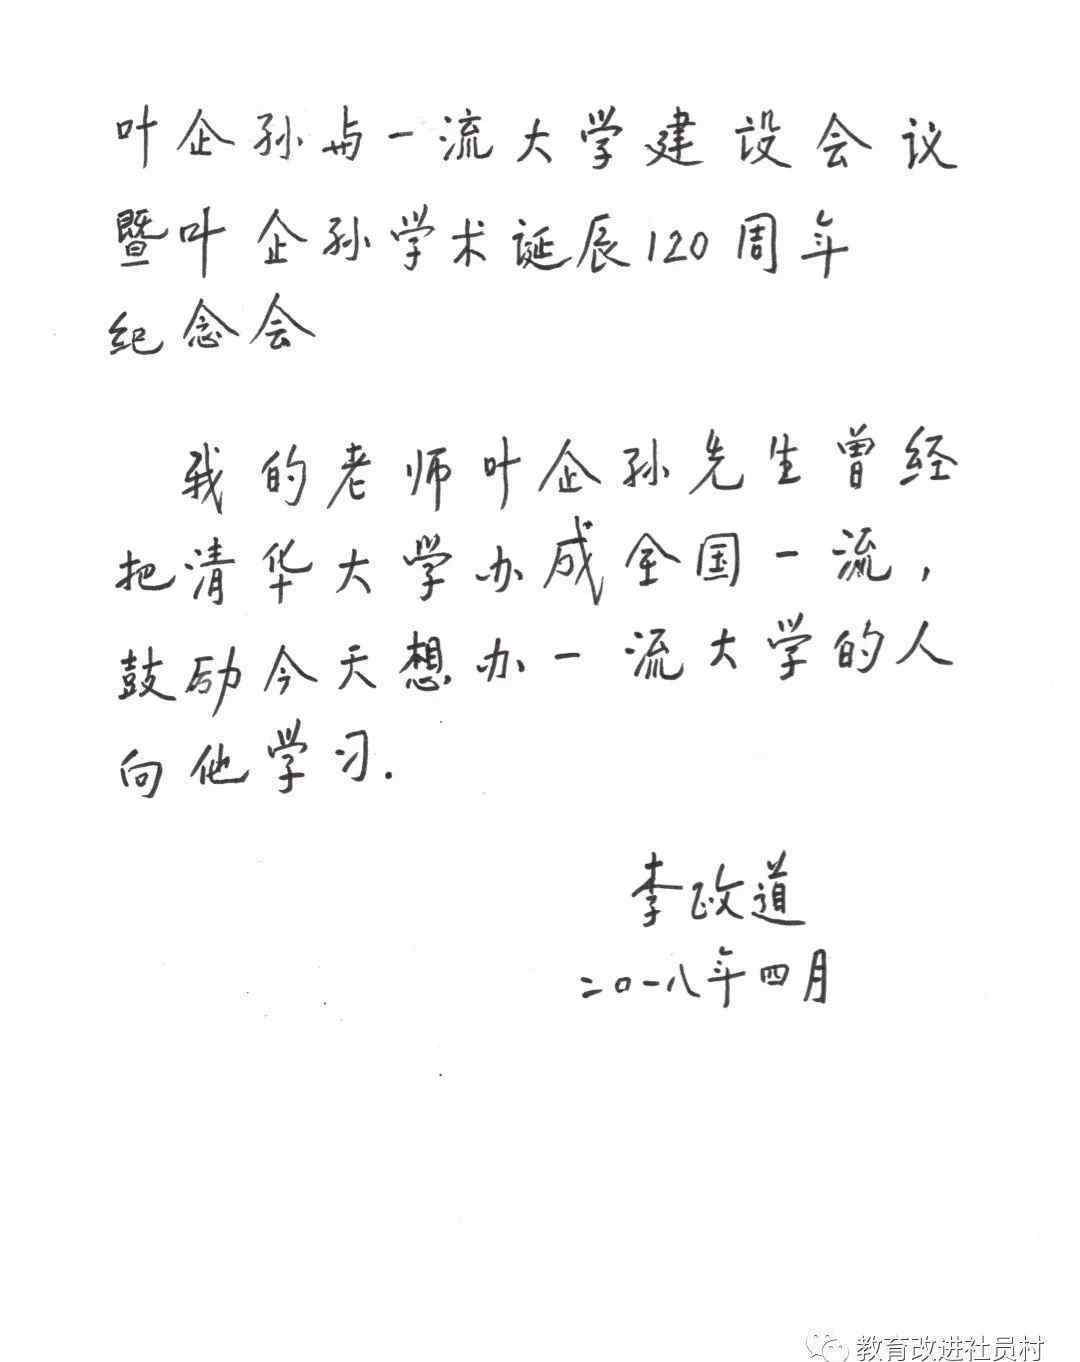 叶企孙与一流大学建设会议
暨叶企孙学术诞辰120周年
纪念会
我的老师叶企孙先生曾经
把清华大学办成全国一流,
鼓励今天想办一流大学的人
向他学习.
李政道
二〇一八年四月
教育改进社员村